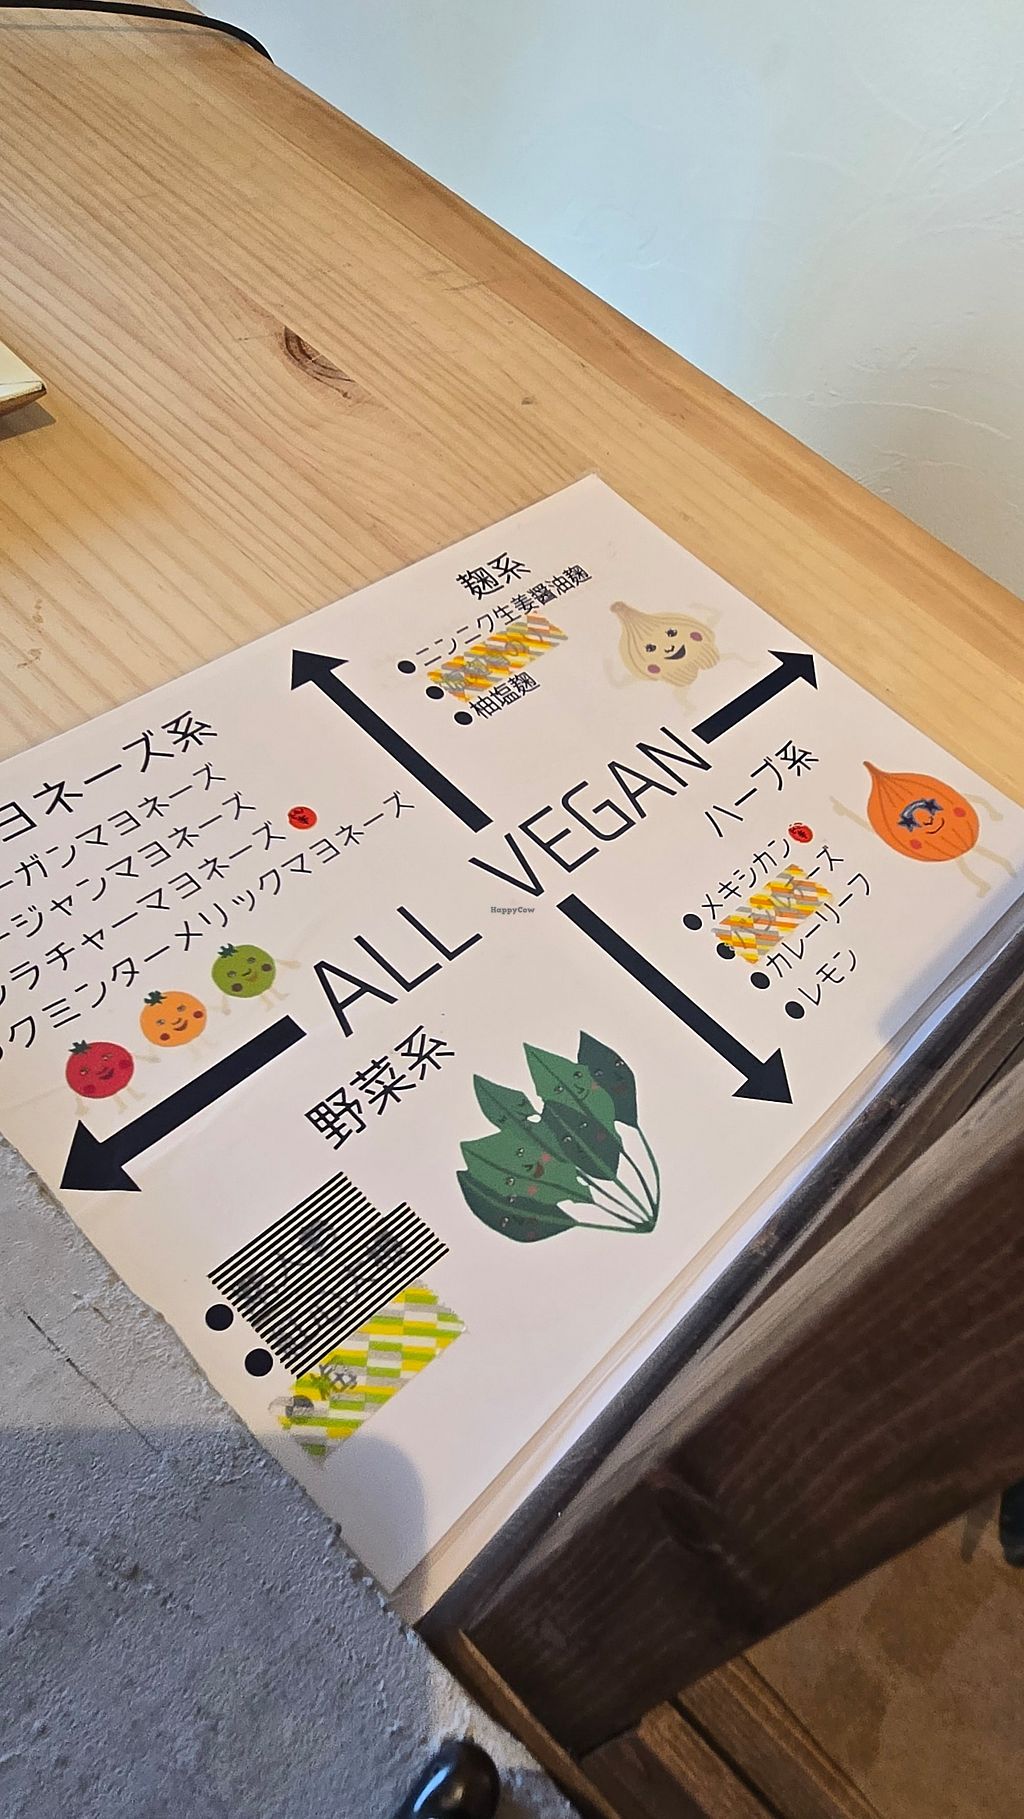 麹系
●ニンニク生姜醤油麹
●柚塩麹
ヨネーズ系
ーガンマヨネーズ
ージャンマヨネーズ
ラチャーマヨネーズ
クミンターメリックマヨネーズ
ALL VEGAN
ハーブ系
●メキシカン
●カレーリーフ
●レモン
野菜系
梅
HappyCow